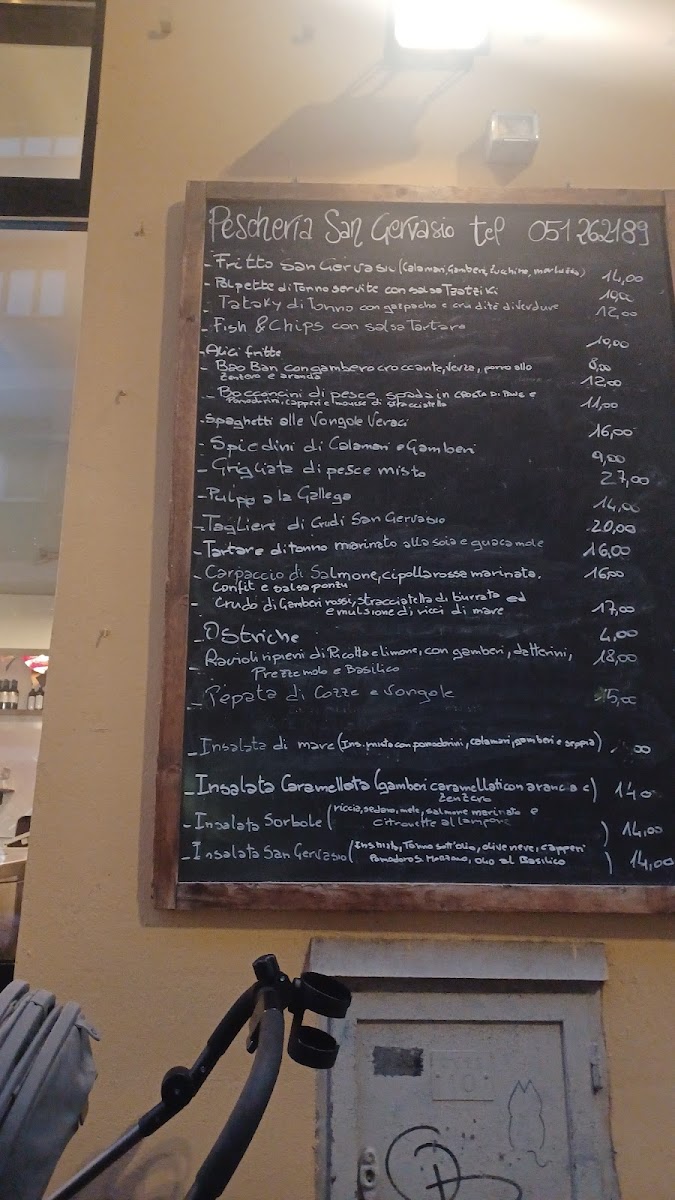 Pescheria San Gervasio tel 051 262189
- Fritto San Gervasio (Calamari, Gamberi, Zucchine, merluzzo) 14,00
- Polpette di Tonno servite con salsa Tzatziki 10,00
- Tataky di Tonno con gazpacho e crudité di verdure 12,00
- Fish & Chips con salsa Tartara 10,00
- Alici fritte 8,00
- Bao Ban con gambero croccante, verza, porro allo 12,00
zenzero e arancia
- Bocconcini di pesce spada in CROSTA DI PANE e 11,00
Pomodorini, capperi e mousse di stracciatella
- Spaghetti alle Vongole Veraci 16,00
- Spiedini di Calamari e Gamberi 9,00
- Grigliata di pesce misto 27,00
- Pulpo a la Gallega 14,00
- Tagliere di Crudi San Gervasio 20,00
- Tartare di tonno marinato alla soia e guacamole 16,00
- Carpaccio di Salmone, cipolla rossa marinata, 16,00
confit e salsa ponzu
- Crudo di Gamberi rossi, stracciatella di burrata ed 17,00
emulsione di ricci di mare
- Ostriche 4,00
- Ravioli ripieni di Ricotta e limone, con gamberi, datterini, 18,00
Prezzemolo e Basilico
- Pepata di Cozze e Vongole 15,00
- Insalata di mare (Ins. mista con pomodorini, calamari, gamberi e seppia) ,00
- Insalata Caramellata (gamberi caramellati con arancia e 14,0
zenzero)
- Insalata Sorbole (riccia, sedano, mele, salmone marinato e 14,00
citronette al lampone)
- Insalata San Gervasio (Ins. mista, Tonno sott'olio, olive nere, capperi 14,00
Pomodoro S. Marzano, olio al Basilico)